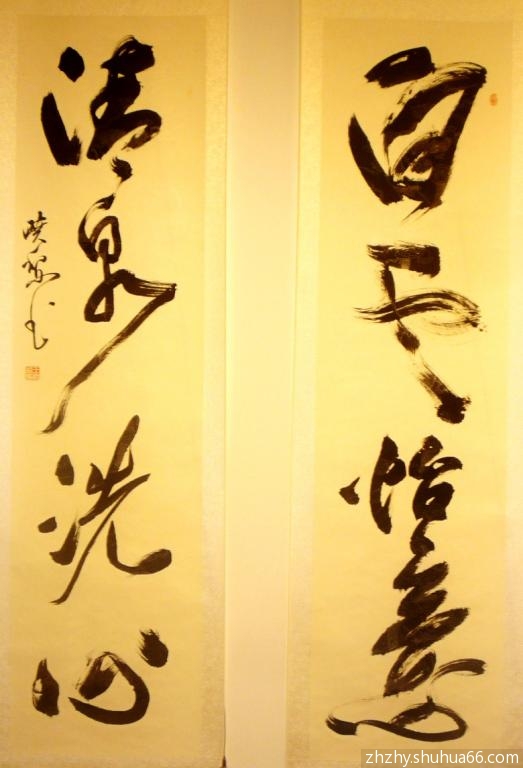 白云怡意
清泉洗心
zhzhy.shuhua66.com